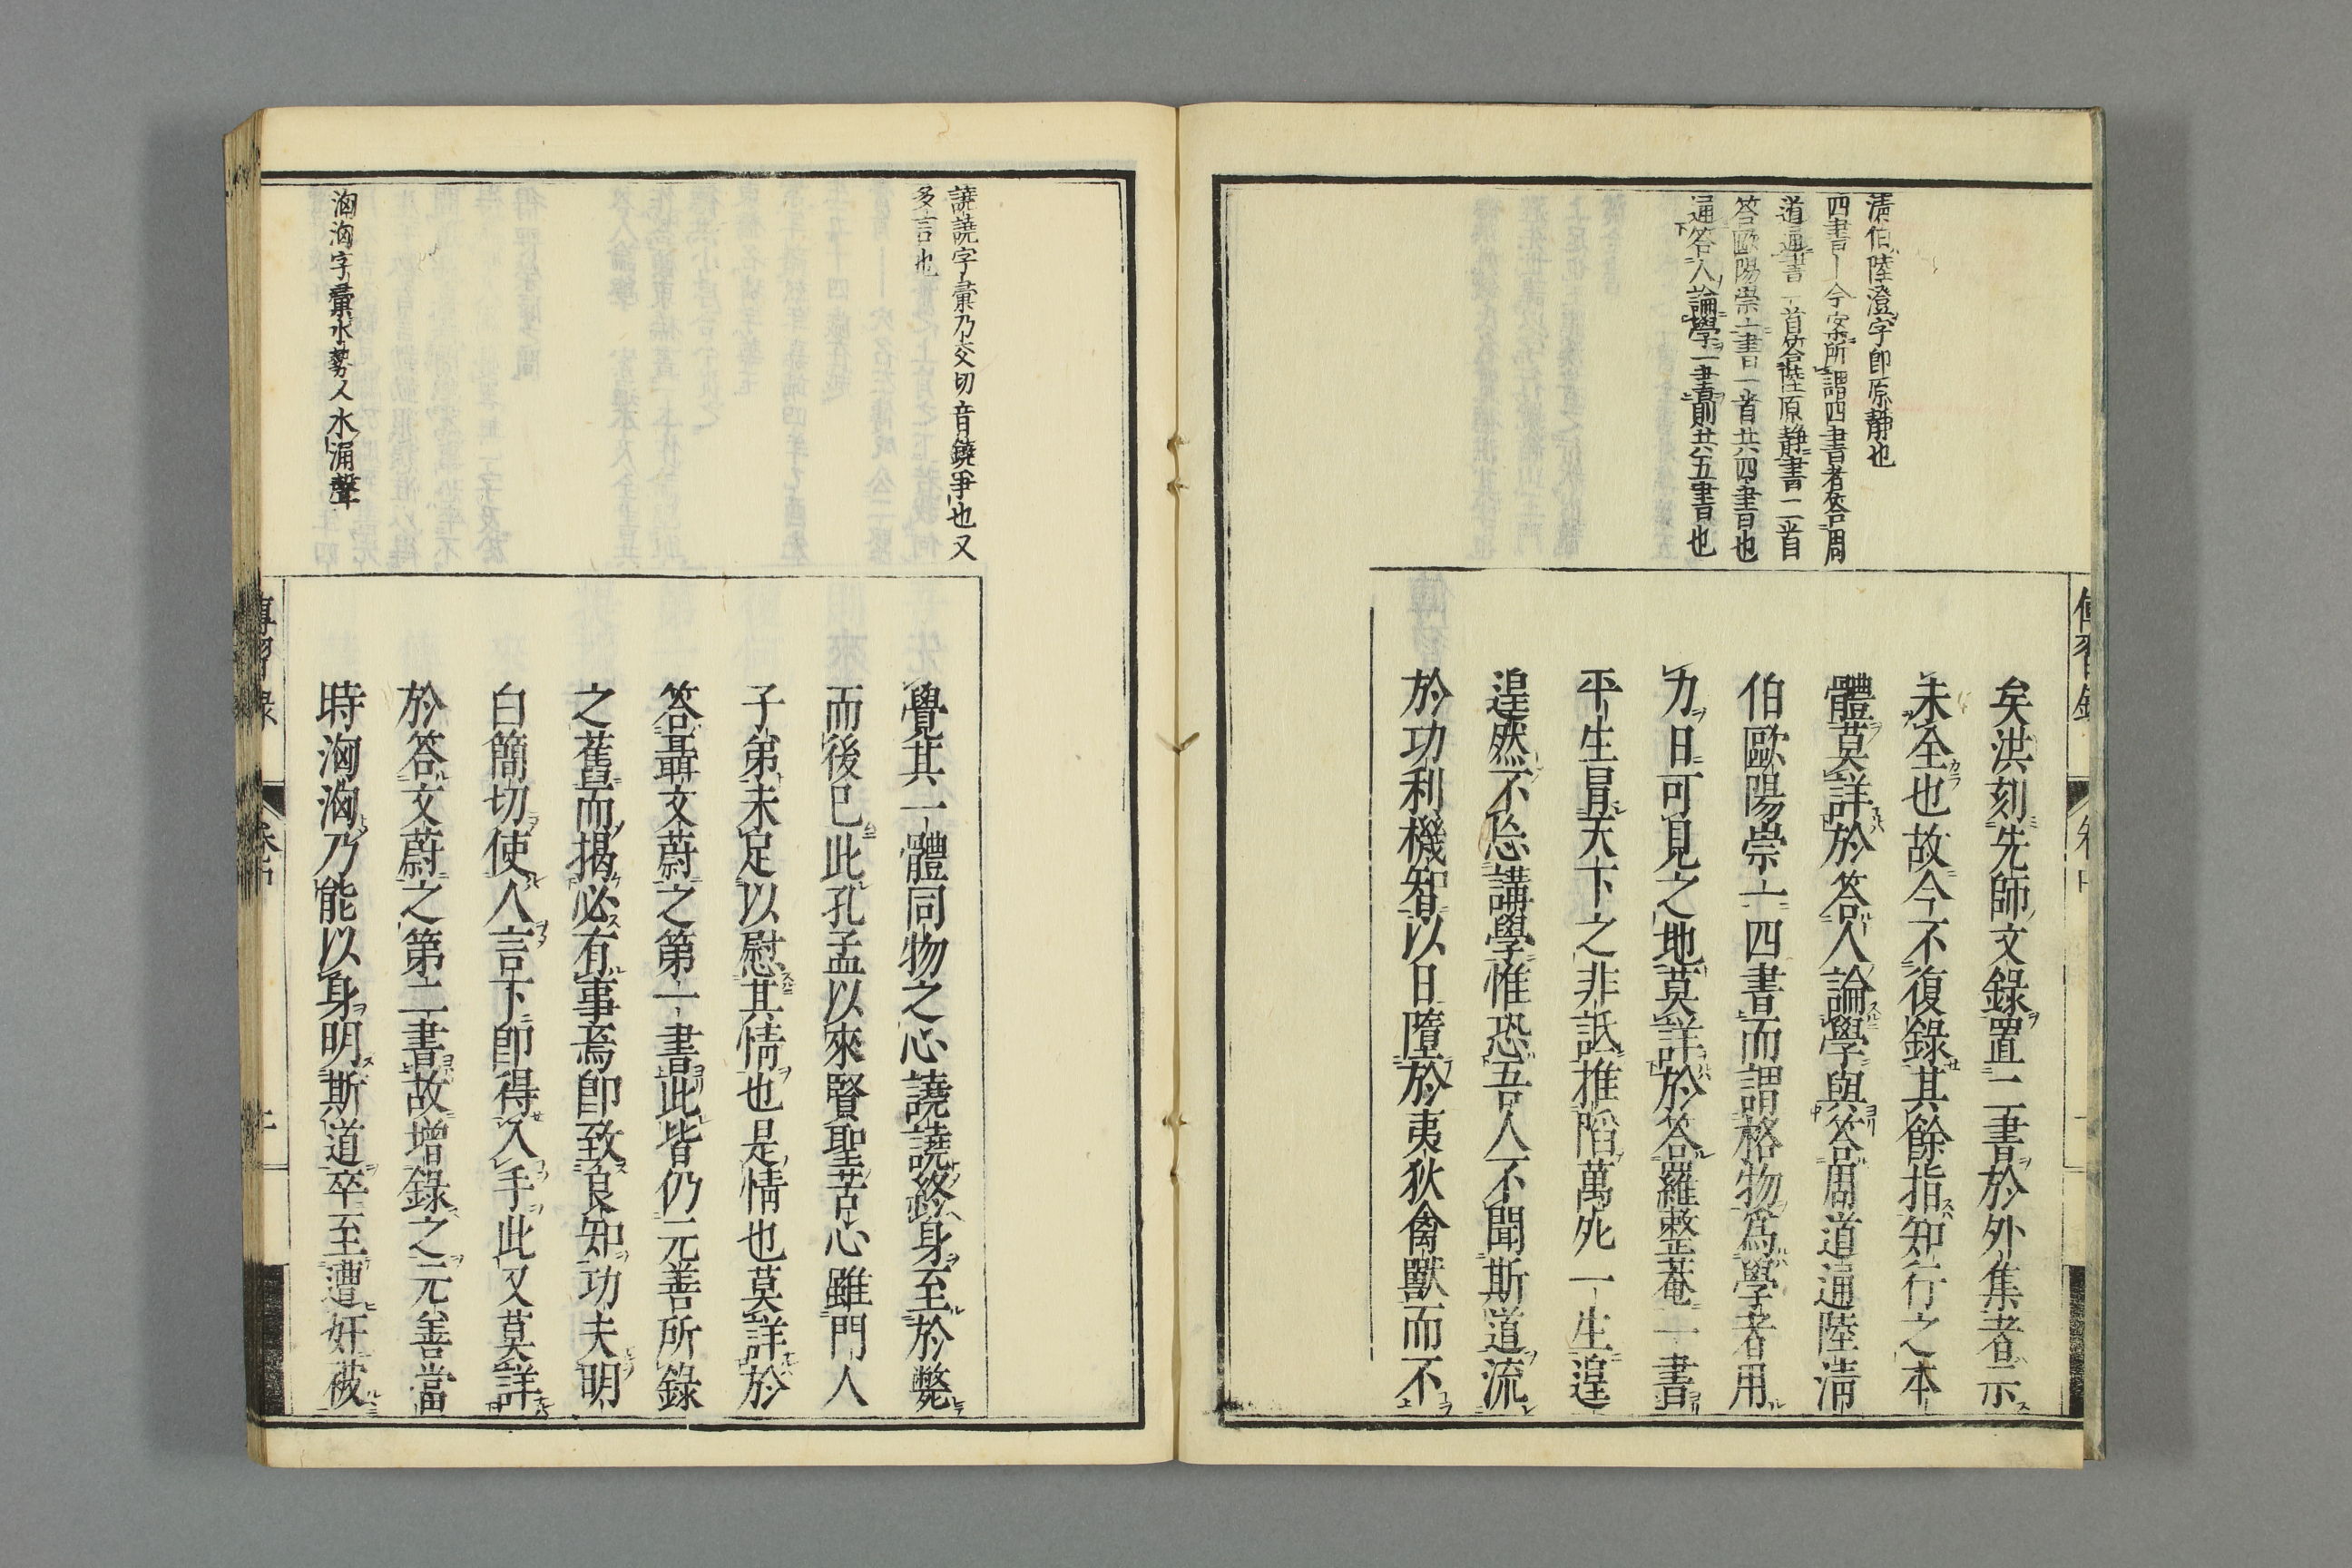 清伯陸澄字即原靜也
四書ー今案所謂四書者答周
道通書一首答陸原靜書二首
答歐陽崇一書一首共四書也
通答人論學一書則共五書也
矣洪刻先師文錄置二書於外集者示
未全也故今不復錄其餘指知行之本
體莫詳於答人論學與答周道通陸清
伯歐陽崇一四書而謂格物爲學者用
力日可見之地莫詳於答羅整菴一書
平生冒天下之非詆推陷萬死一生遑
遑然不忘講學惟恐吾人不聞斯道流
於功利機智以日墮於夷狄禽獸而不
譊譊字彙乃交切音鐃爭也又
多言也
洶洶字彙水勢人水涌聲
覺其一體同物之心譊譊終身至於斃
而後已此孔孟以來賢聖苦心雖門人
子弟未足以慰其情也是情也莫詳於
答聶文蔚之第一書此皆仍元善所錄
之舊而揭必有事焉即致良知功夫明
白簡切使人言下即得入手此又莫詳
於答文蔚之第二書故增錄之元善當
時洶洶乃能以身明斯道卒至遭奸被
傳習錄